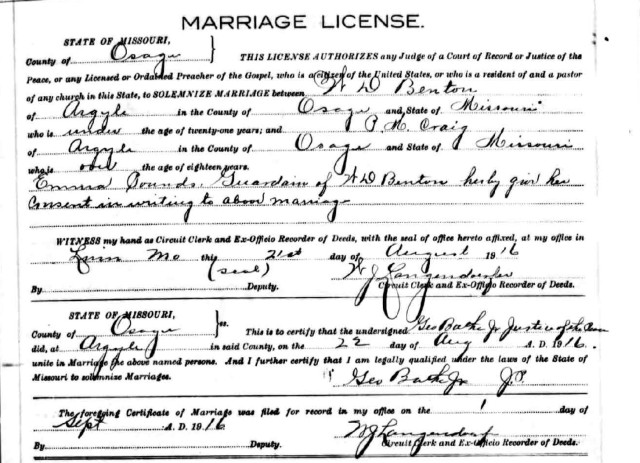 MARRIAGE LICENSE.
STATE OF MISSOURI,
County of Osage } THIS LICENSE AUTHORIZES any Judge of a Court of Record or Justice of the
Peace, or any Licensed or Ordained Preacher of the Gospel, who is a citizen of the United States, or who is a resident of and a pastor
of any church in this State, to SOLEMNIZE MARRIAGE between W D Benton
of Argyle in the County of Osage and State of Missouri
who is under the age of twenty-one years; and P. M. Craig
of Argyle in the County of Osage and State of Missouri
who is over the age of eighteen years.
Emma Pounds, Guardain of W D Benton herby give her
Consent in writing to above marriage
WITNESS my hand as Circuit Clerk and Ex-Officio Recorder of Deeds, with the seal of office hereto affixed, at my office in
Linn Mo this 21st day of August 1916
(seal) W J Langendoerfer
By Deputy. Circuit Clerk and Ex-Officio Recorder of Deeds.
STATE OF MISSOURI,
County of Osage } ss. This is to certify that the undersigned Geo Bathe Jr Justice of the
did, at Argyle in said County, on the 22 day of Aug A. D. 1916.
unite in Marriage the above named persons. And I further certify that I am legally qualified under the laws of the State of
Missouri to solemnize Marriages. Geo Bathe Jr J.P.
The foregoing Certificate of Marriage was filed for record in my office on the 1 day of
Sept A. D. 1916 W J Langendoerfer
By Deputy. Circuit Clerk and Ex-Officio Recorder of Deeds.